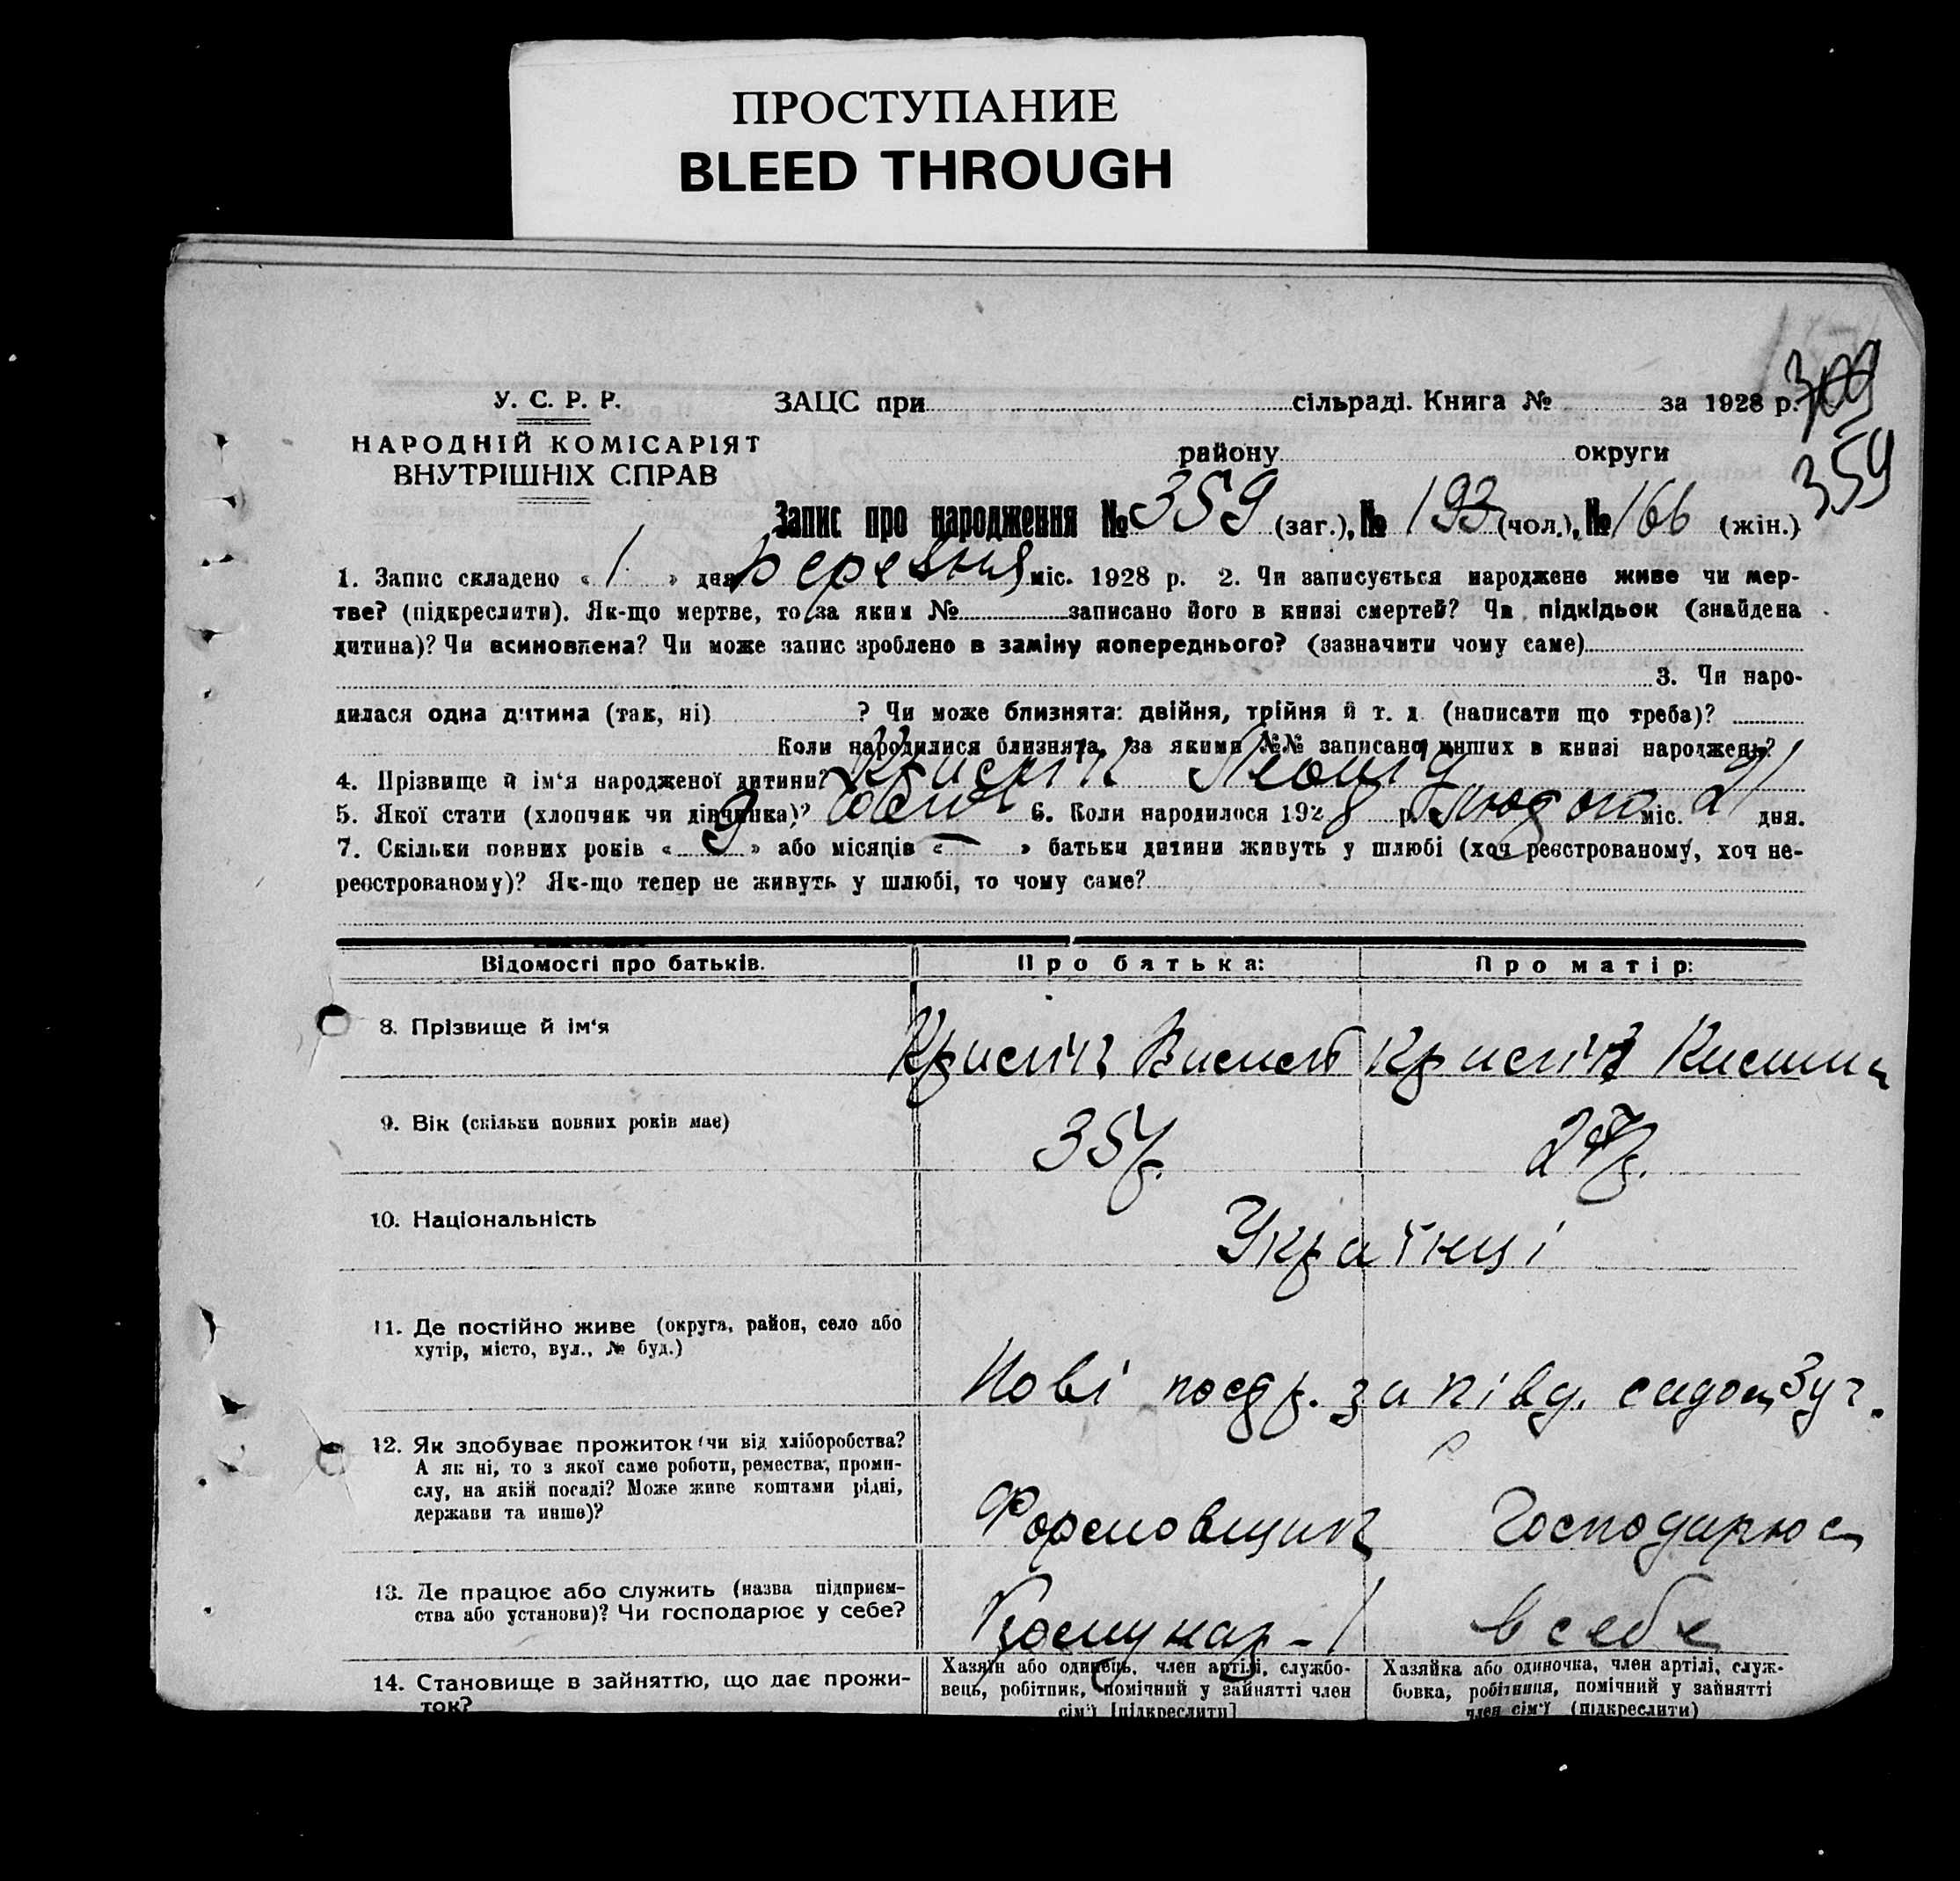 ПРОСТУПАНИЕ
BLEED THROUGH
309
359
У. С. Р. Р.
НАРОДНІЙ КОМІСАРІЯТ
ВНУТРІШНІХ СПРАВ
ЗАЦС при сільраді. Книга № за 1928 р.
району округи
Запис про народження № 359 (заг.), № 193 (чол.), № 166 (жін.)
1. Запис складено « 1 » дня березня міс. 1928 р. 2. Чи записується народжене живе чи мер-
тве? (підкреслити). Як-що мертве, то за яким № записано його в книзі смертей? Чи підкідьок (знайдена
дитина)? Чи всиновлена? Чи може запис зроблено в заміну попереднього? (зазначити чому саме)
3. Чи наро-
дилася одна дитина (так, ні) ? Чи може близнята: двійня, трійня й т. д. (написати що треба)?
Коли народилися близнята, за якими №№ записано инших в книзі народжень?
4. Прізвище й ім'я народженої дитини? Леонід
5. Якої стати (хлопчик чи дівчинка)? 6. Коли народилося 1928 р. лютого міс. 21 дня.
7. Скільки повних років « 9 » або місяців « — » батьки дитини живуть у шлюбі (хоч реєстрованому, хоч не-
реєстрованому)? Як-що тепер не живуть у шлюбі, то чому саме?
Відомості про батьків. Про батька: Про матір:
8. Прізвище й ім'я
9. Вік (скільки повних років має) 35 р.
10. Національність Українці
11. Де постійно живе (округа, район, село або
хутір, місто, вул., № буд.)
Нові за півд.
12. Як здобуває прожиток (чи від хліборобства?
А як ні, то з якої саме роботи, ремества, проми-
слу, на якій посаді? Може живе коштами рідні,
держави та инше)?
Формовщик Господарює
13. Де працює або служить (назва підприєм-
ства або установи)? Чи господарює у себе?
Комунар в себе
14. Становище в зайняттю, що дає прожи-
ток?
Хазяїн або одинець, член артілі, службо-
вець, робітник, помічний у зайнятті член
сім'ї [підкреслити]
Хазяйка або одиночка, член артілі, служ-
бовка, робітниця, помічний у зайнятті
член сім'ї (підкреслити)